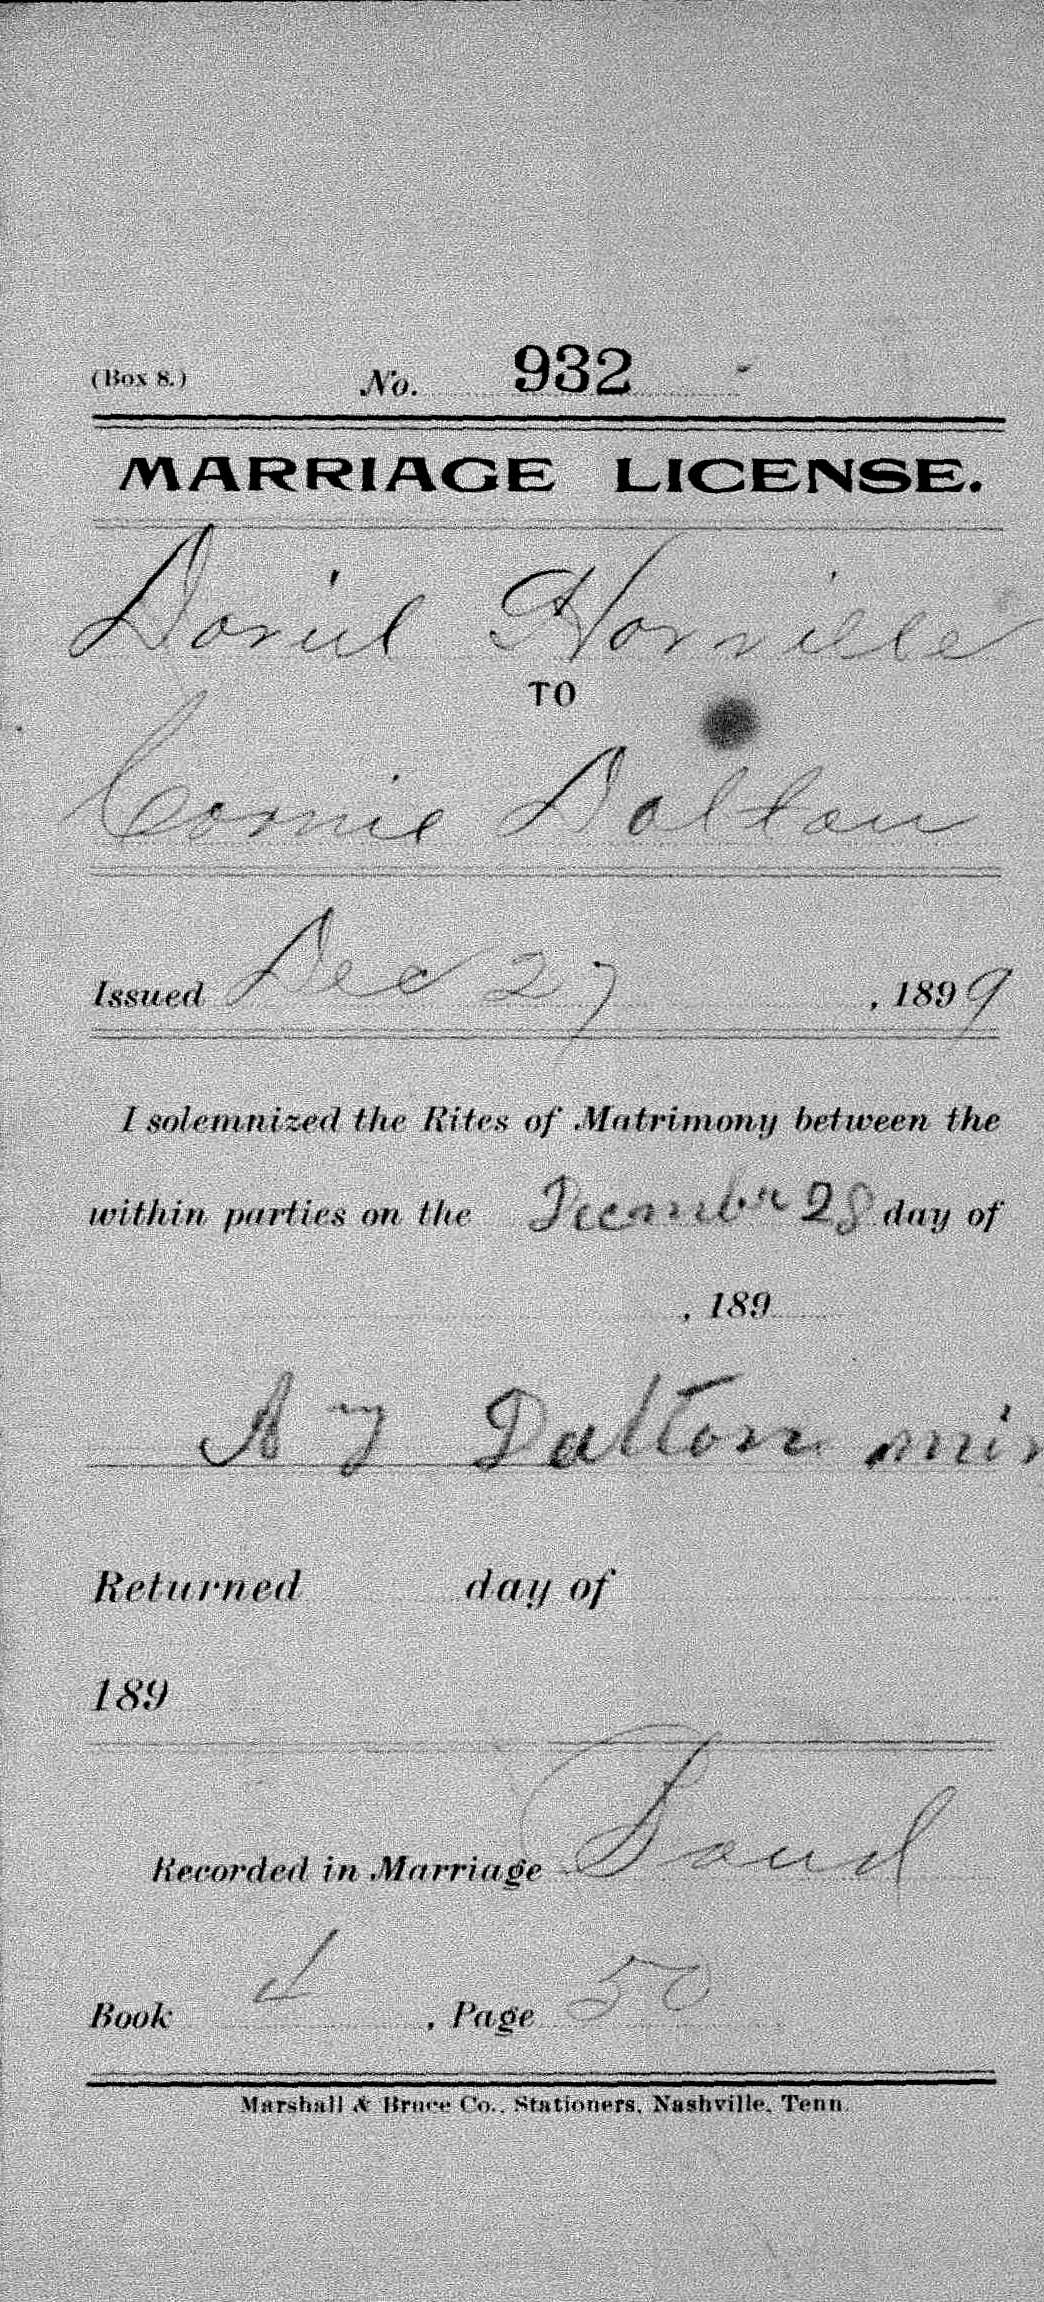 (Box 8.) No. 932
MARRIAGE LICENSE.
Daniel Horville
TO
Connie Dalton
Issued Dec 27, 1899
I solemnized the Rites of Matrimony between the
within parties on the December 28 day of
, 189
A J Dalton min
Returned day of
189
Recorded in Marriage Bond
Book , Page 50
Marshall & Bruce Co., Stationers, Nashville, Tenn.